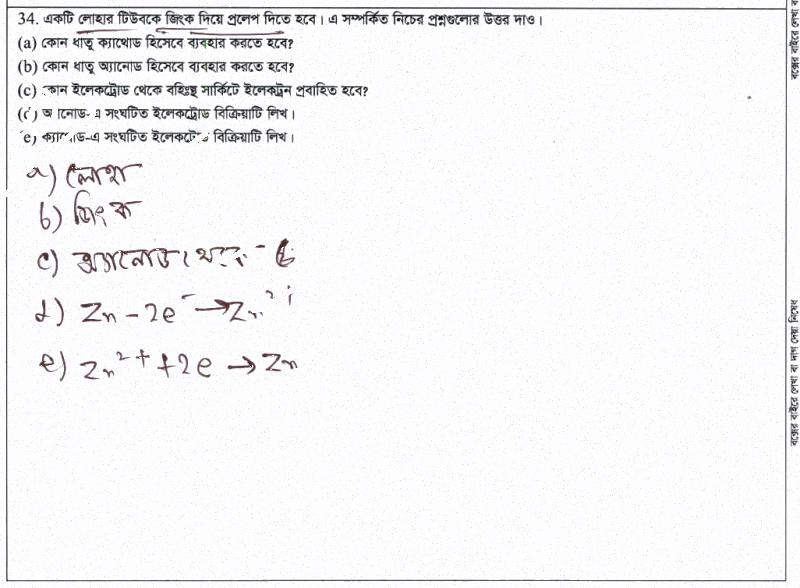 34. একটি লোহার টিউবকে জিংক দিয়ে প্রলেপ দিতে হবে। এ সম্পর্কিত নিচের প্রশ্নগুলোর উত্তর দাও।
(a) কোন ধাতু ক্যাথোড হিসেবে ব্যবহার করতে হবে?
(b) কোন ধাতু অ্যানোড হিসেবে ব্যবহার করতে হবে?
(c) কোন ইলেকট্রোড থেকে বহিঃস্থ সার্কিটে ইলেকট্রন প্রবাহিত হবে?
(d) অ্যানোড-এ সংঘটিত ইলেকট্রোড বিক্রিয়াটি লিখ।
(e) ক্যাথোড-এ সংঘটিত ইলেকট্রোড বিক্রিয়াটি লিখ।
a) লোহা
b) জিংক
c) অ্যানোড থেকে
d) Zn - 2e⁻ → Zn²⁺
e) Zn²⁺ + 2e → Zn
বক্সের বাইরে লেখা ব
বক্সের বাইরে লেখা বা দাগ দেয়া নিষেধ